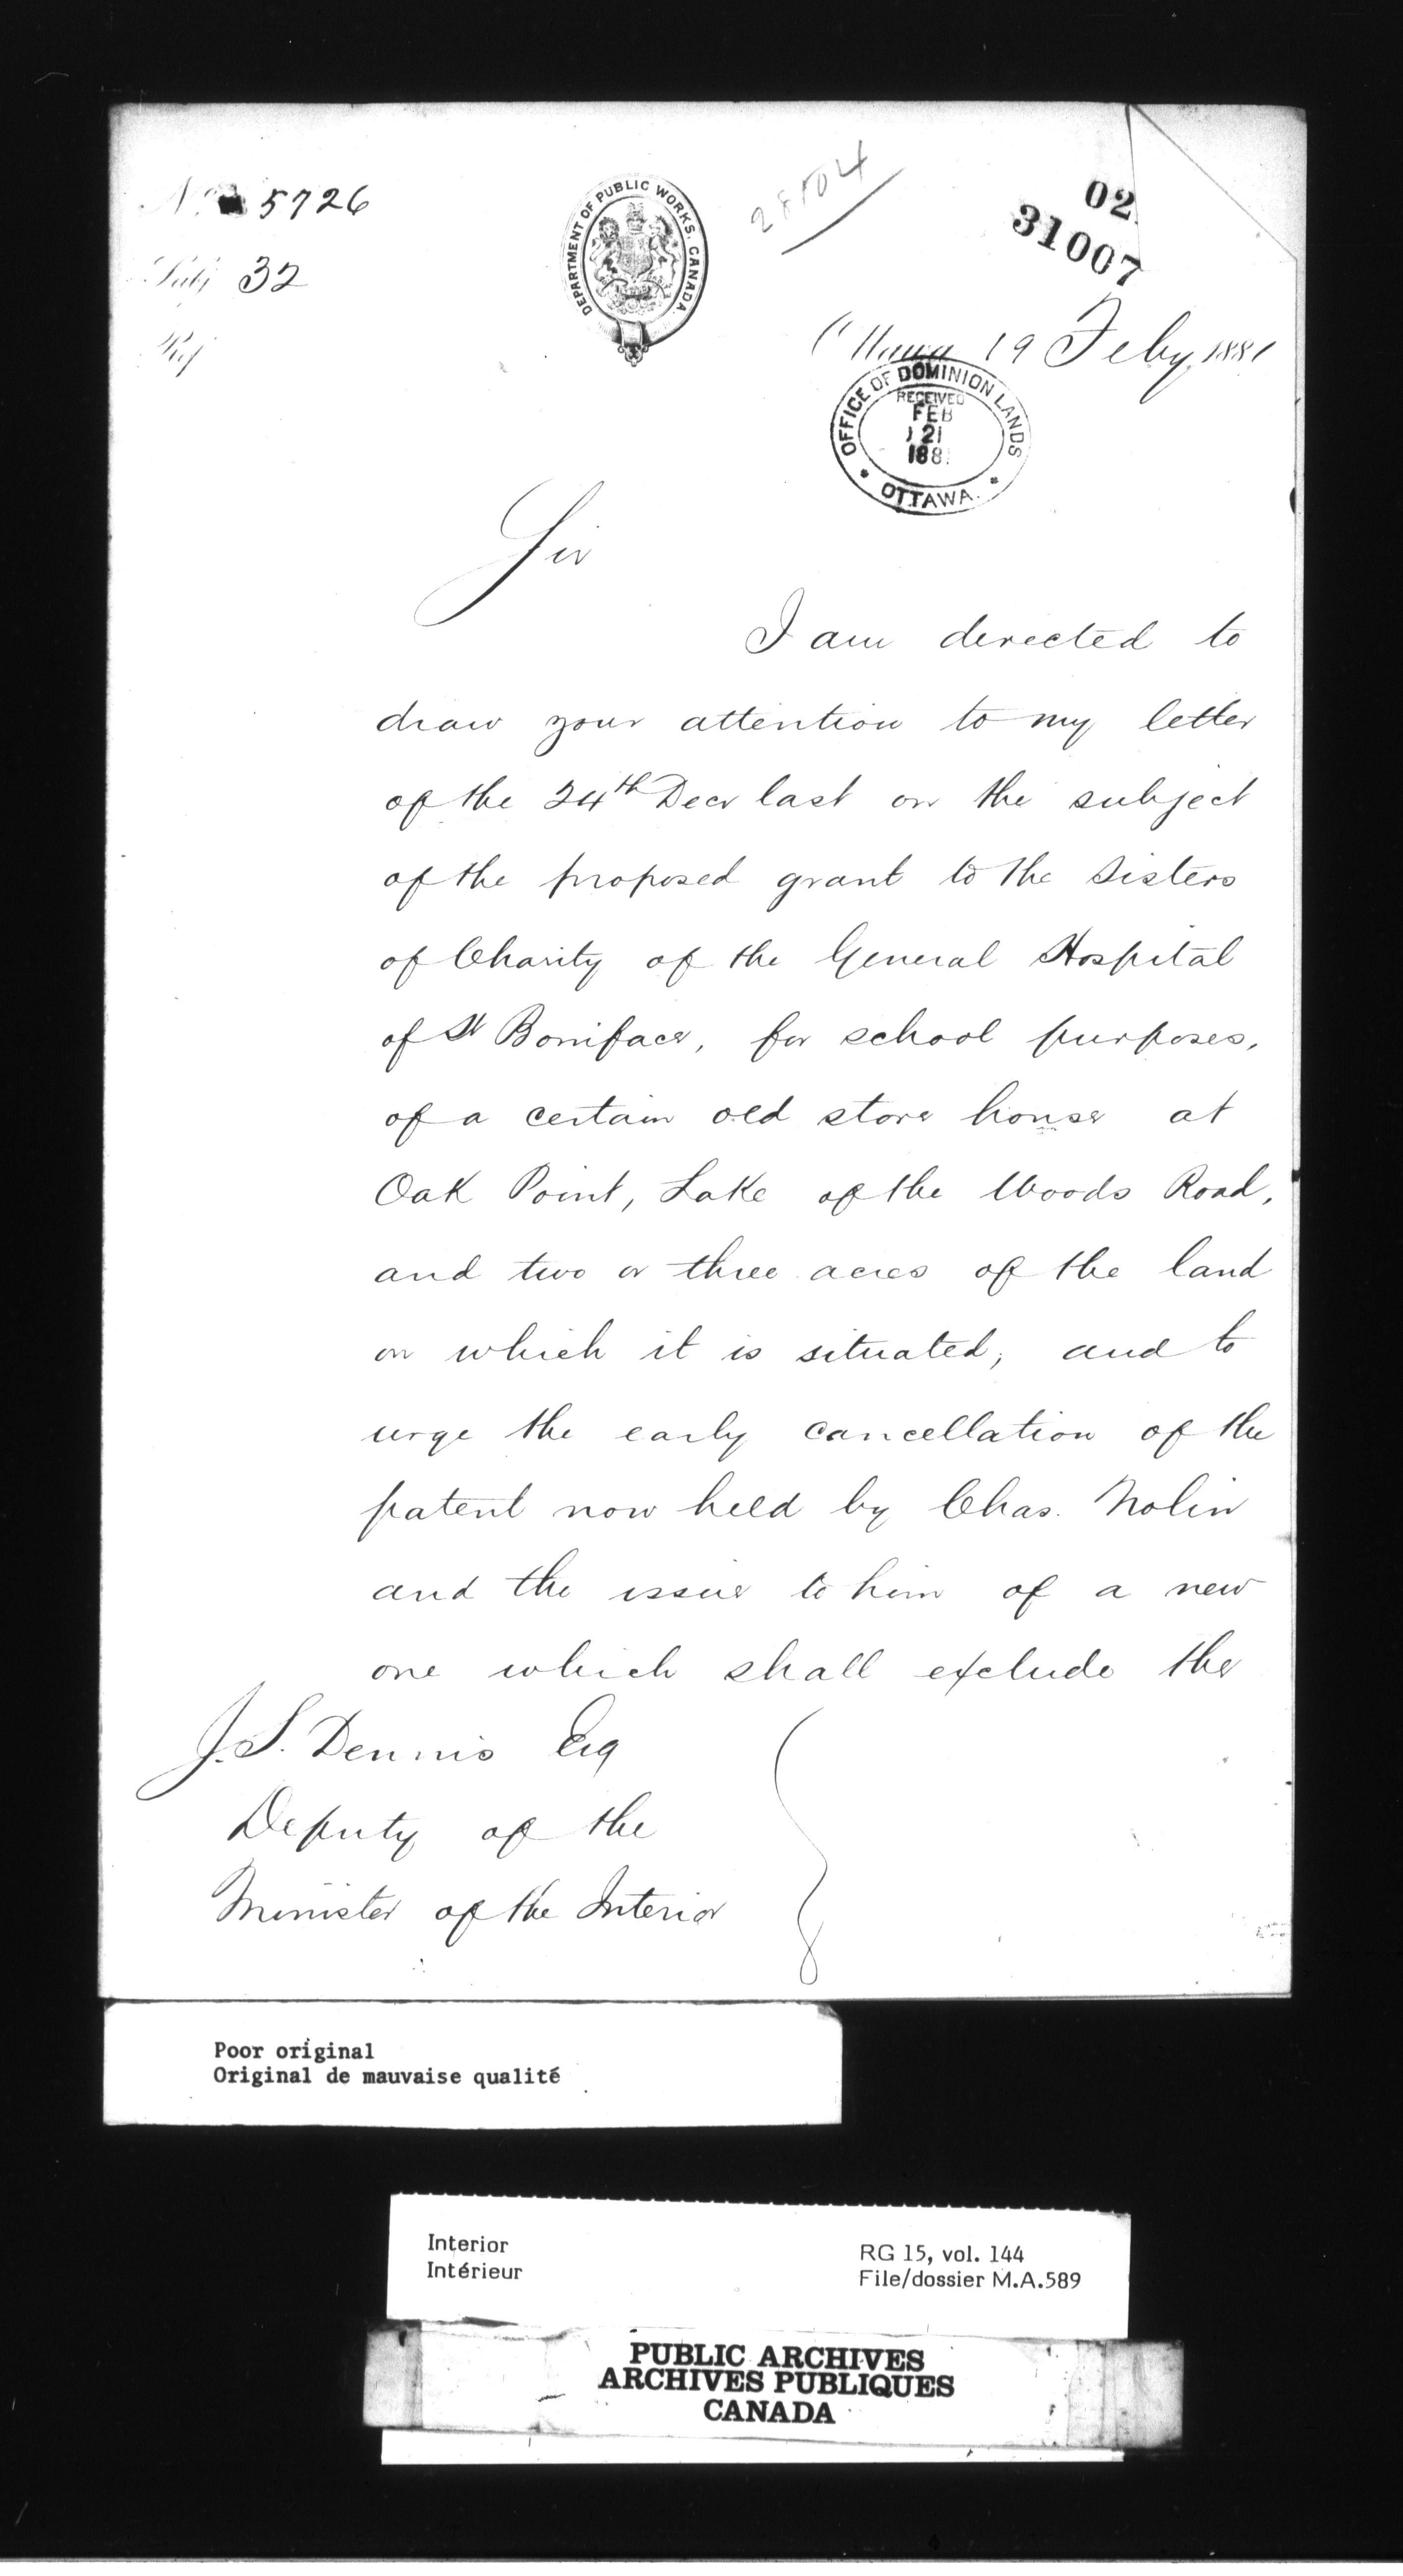 No 5726
Subj 32
Ref
DEPARTMENT OF PUBLIC WORKS, CANADA.
28504
02
31007
Ottawa 19 Feby 1881
OFFICE OF DOMINION LANDS
RECEIVED
FEB
21
188
OTTAWA.
Sir
I am directed to
draw your attention to my letter
of the 24th Decr last on the subject
of the proposed grant to the Sisters
of Charity of the General Hospital
of St Boniface, for school purposes,
of a certain old store house at
Oak Point, Lake of the Woods Road,
and two or three acres of the land
on which it is situated, and to
urge the early cancellation of the
patent now held by Chas. Nolin
and the issue to him of a new
one which shall exclude the
J. S. Dennis Esq
Deputy of the
Minister of the Interior
Poor original
Original de mauvaise qualité
Interior
Intérieur
RG 15, vol. 144
File/dossier M.A.589
PUBLIC ARCHIVES
ARCHIVES PUBLIQUES
CANADA